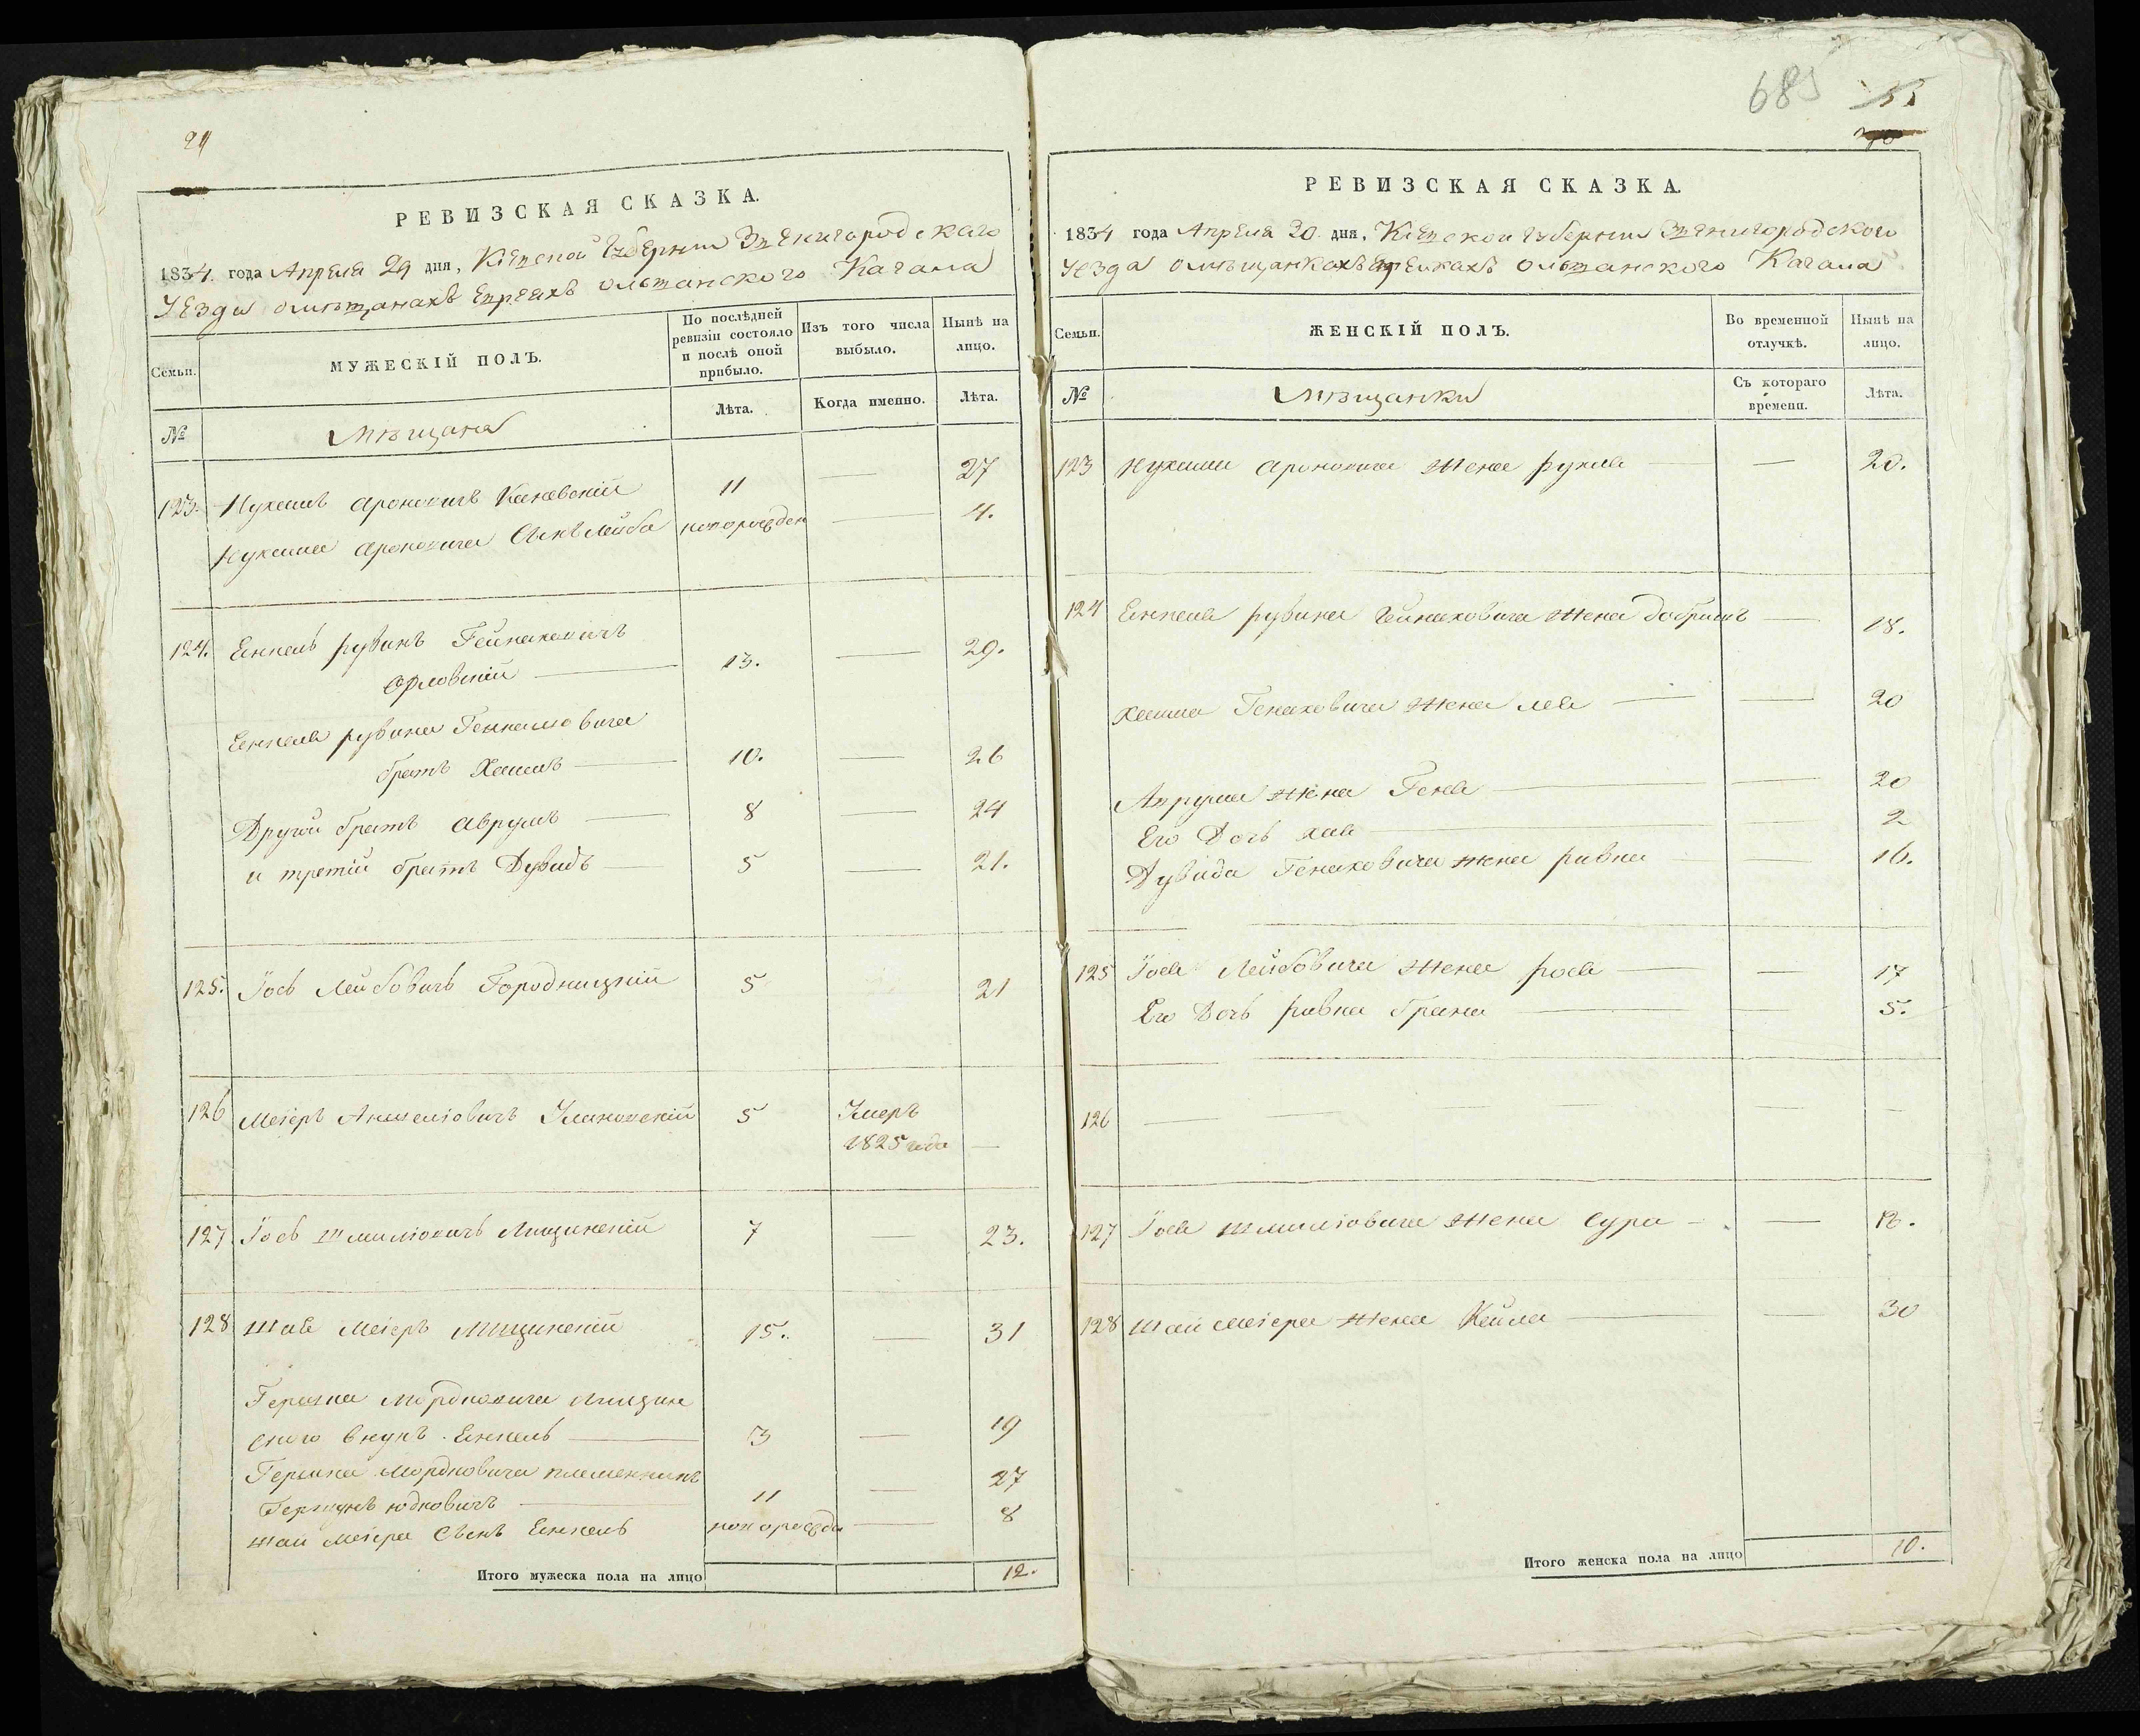 24
РЕВИЗСКАЯ СКАЗКА.
1834. года Апреля 29 дня, Кіевской Губернии Звенигородскаго
Уезда о мѣщанахъ Евреяхъ Ольшанского Кагала
Семьи.
МУЖЕСКІЙ ПОЛЪ.
По послѣдней ревизіи состояло и послѣ оной прибыло.
Изъ того числа выбыло.
Нынѣ на лицо.
№
Мѣщане
Лѣта.
Когда именно.
Лѣта.
123. Нухимъ Ароновичъ Каневскій 11 — 27
Нухима Ароновича Сынъ Лейба новорожден — 4.
124. Янкель Рувинъ Гейнаховичъ
Орловскій — 13. — 29.
Янкеля Рувина
братъ Хаимъ — 10. — 26
Другой братъ Аврумъ — 8 — 24
и третій братъ Дувидъ — 5 — 21.
125. Іось Лейбовичъ Городницкій 5 21
126 Меіеръ Аншеліовичъ 5 Умеръ
1825 года —
127 Іось Шмиліовичъ Лищинскій 7 — 23.
128 Шая Меіеръ Лищинскій 15. — 31
Гершка Мордковича Лищин
ского внукъ Янкель — 3 — 19
Гершка Мордковича племенникъ
Юдковичъ — 11 — 27
Шаи Меіера Сынъ Янкель новорожде — 8
Итого мужеска пола на лицо 12.
685
РЕВИЗСКАЯ СКАЗКА.
1834 года Апреля 30 дня, Кіевской губернии Звенигородского
Уезда о мѣщанкахъ Еврейкахъ Ольшанского Кагала
Семьи.
ЖЕНСКІЙ ПОЛЪ.
Во временной отлучкѣ.
Нынѣ на лицо.
№
Мѣщанки
Съ котораго времени.
Лѣта.
123 Нухима Ароновича Жена Рухля — — 20.
124 Янкеля Рувина Гейнаховича Жена Добришъ — 18.
Хаима Генаховича Жена Лея — — 20
Аврума Жена Геня — — 20
Его Дочь Хая — — 2
Дувида Генаховича Жена Ривка — 16.
125 Іося Лейбовича Жена Рося — — 17
Его Дочь Ривка Брана — — 5.
126 — — — — —
127 Іося Шмиліовича Жена Сура — — 18.
128 Шаи Меіера Жена Кейла — — 30
Итого женска пола на лицо 10.